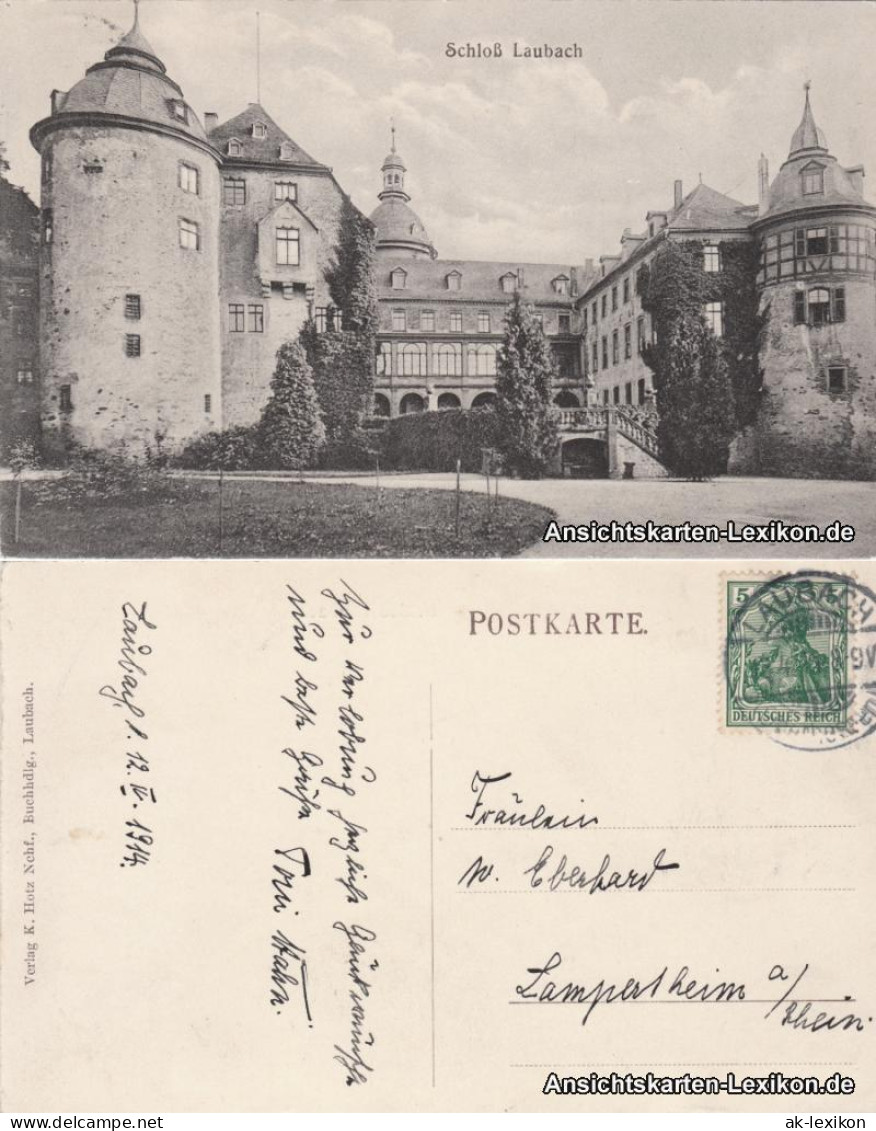 Schloß Laubach
Ansichtskarten-Lexikon.de
Verlag K. Hotz Nchf., Buchhdlg., Laubach.
Laubach, d. 12. IV. 1914.
Zur Verlobung herzliche Glückwünsche
und beste Grüße Toni Hahn.
POSTKARTE.
5
LAUBACH
8-9V
DEUTSCHES REICH
Fräulein
W. Eberhard
Lampertheim a/
Rhein.
Ansichtskarten-Lexikon.de
ak-lexikon